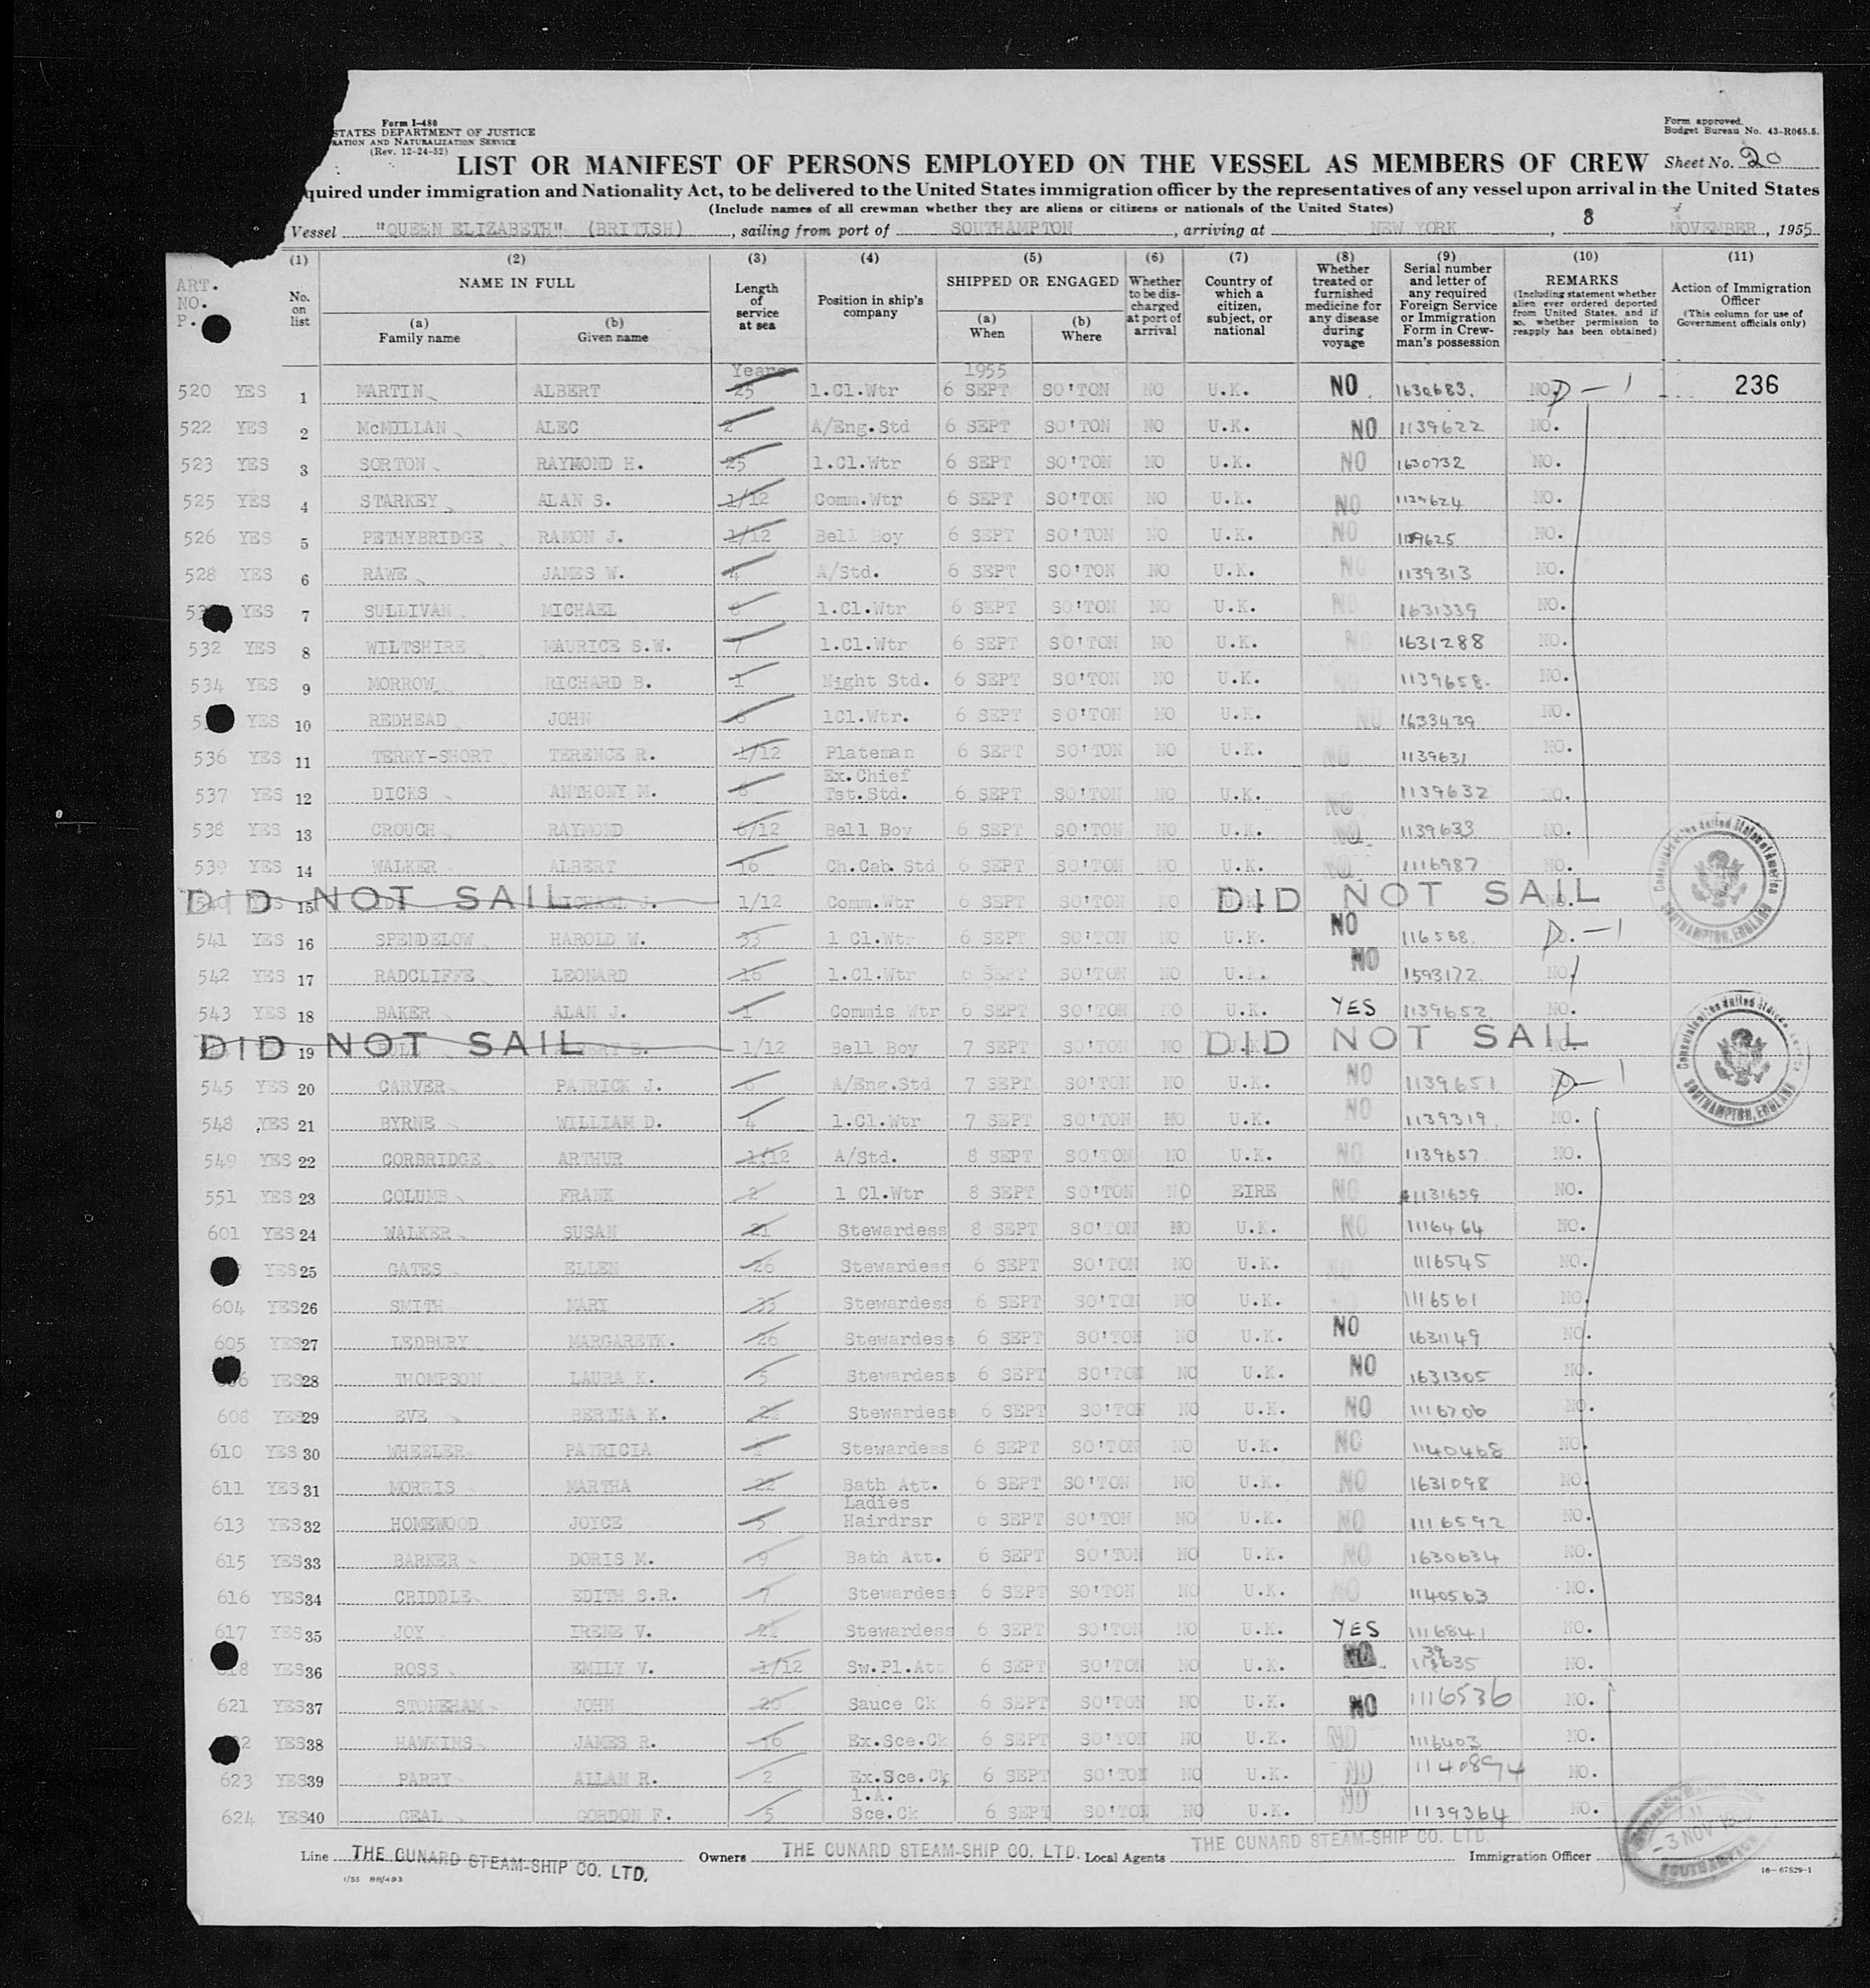 Form I-480
STATES DEPARTMENT OF JUSTICE
RATION AND NATURALIZATION SERVICE
(Rev. 12-24-52)
Form approved.
Budget Bureau No. 43-R065.5.
LIST OR MANIFEST OF PERSONS EMPLOYED ON THE VESSEL AS MEMBERS OF CREW Sheet No. 20
quired under immigration and Nationality Act, to be delivered to the United States immigration officer by the representatives of any vessel upon arrival in the United States
(Include names of all crewman whether they are aliens or citizens or nationals of the United States)
Vessel "QUEEN ELIZABETH" (BRITISH), sailing from port of SOUTHAMPTON, arriving at NEW YORK, 8 NOVEMBER, 1955
ART. NO. P.
(1) No. on list
(2) NAME IN FULL (a) Family name (b) Given name
(3) Length of service at sea
(4) Position in ship's company
(5) SHIPPED OR ENGAGED (a) When (b) Where
(6) Whether to be discharged at port of arrival
(7) Country of which a citizen, subject, or national
(8) Whether treated or furnished medicine for any disease during voyage
(9) Serial number and letter of any required Foreign Service or Immigration Form in Crewman's possession
(10) REMARKS (Including statement whether alien ever ordered deported from United States, and if so, whether permission to reapply has been obtained)
(11) Action of Immigration Officer (This column for use of Government officials only)
Years 1955
520 YES 1 MARTIN ALBERT 25 1.Cl.Wtr 6 SEPT SO'TON NO U.K. NO 1630683. NO. D-1 236
522 YES 2 McMILLAN ALEC 2 A/Eng.Std 6 SEPT SO'TON NO U.K. NO 1139622 NO.
523 YES 3 SORTON RAYMOND H. 25 1.Cl.Wtr 6 SEPT SO'TON NO U.K. NO 1630732 NO.
525 YES 4 STARKEY ALAN S. 1/12 Comm.Wtr 6 SEPT SO'TON NO U.K. NO 1139624 NO.
526 YES 5 PETHYBRIDGE RAMON J. 1/12 Bell Boy 6 SEPT SO'TON NO U.K. NO 1139625 NO.
528 YES 6 RAWE JAMES W. 4 A/Std. 6 SEPT SO'TON NO U.K. NO 1139313 NO.
YES 7 SULLIVAN MICHAEL 8 1.Cl.Wtr 6 SEPT SO'TON NO U.K. NO 1631339 NO.
532 YES 8 WILTSHIRE MAURICE S.W. 7 1.Cl.Wtr 6 SEPT SO'TON NO U.K. NO 1631288 NO.
534 YES 9 MORROW RICHARD B. 1 Night Std. 6 SEPT SO'TON NO U.K. NO 1139658. NO.
YES 10 REDHEAD JOHN 6 1Cl.Wtr. 6 SEPT SO'TON NO U.K. NO 1633439 NO.
536 YES 11 TERRY-SHORT TERENCE R. 1/12 Plateman 6 SEPT SO'TON NO U.K. NO 1139631 NO.
537 YES 12 DICKS ANTHONY M. 8 Ex.Chief Tst.Std. 6 SEPT SO'TON NO U.K. NO 1139632 NO.
538 YES 13 CROUCH RAYMOND 6/12 Bell Boy 6 SEPT SO'TON NO U.K. NO 1139633 NO.
539 YES 14 WALKER ALBERT 16 Ch.Cab.Std 6 SEPT SO'TON NO U.K. NO 1116987 NO.
DID NOT SAIL 15 MICHAEL J. 1/12 Comm.Wtr 6 SEPT SO'TON NO U.K. DID NOT SAIL
541 YES 16 SPENDELOW HAROLD W. 33 1 Cl.Wtr 6 SEPT SO'TON NO U.K. NO 116588. D.-1
542 YES 17 RADCLIFFE LEONARD 16 1.Cl.Wtr 6 SEPT SO'TON NO U.K. NO 1593172. NO.
543 YES 18 BAKER ALAN J. 1 Commis Wtr 6 SEPT SO'TON NO U.K. YES 1139652 NO.
DID NOT SAIL 19 1/12 Bell Boy 7 SEPT SO'TON NO U.K. DID NOT SAIL
545 YES 20 CARVER PATRICK J. 6 A/Eng.Std 7 SEPT SO'TON NO U.K. NO 1139651 D-1
548 YES 21 BYRNE WILLIAM D. 4 1.Cl.Wtr 7 SEPT SO'TON NO U.K. NO 1139319. NO.
549 YES 22 CORBRIDGE ARTHUR 1/12 A/Std. 8 SEPT SO'TON NO U.K. NO 1139657 NO.
551 YES 23 COLUMB FRANK 2 1 Cl.Wtr 8 SEPT SO'TON NO EIRE NO 1131659 NO.
601 YES 24 WALKER SUSAN 21 Stewardess 8 SEPT SO'TON NO U.K. NO 1116464 NO.
YES 25 GATES ELLEN 26 Stewardess 6 SEPT SO'TON NO U.K. NO 1116545 NO.
604 YES 26 SMITH MARY 33 Stewardess 6 SEPT SO'TON NO U.K. 1116561 NO.
605 YES 27 LEDBURY MARGARETK. 26 Stewardess 6 SEPT SO'TON NO U.K. NO 1631149 NO.
YES 28 THOMPSON LAURA K. 5 Stewardess 6 SEPT SO'TON NO U.K. NO 1631305 NO.
608 YES 29 EVE BERTHA K. Stewardess 6 SEPT SO'TON NO U.K. NO 1116706 NO.
610 YES 30 WHEELER PATRICIA Stewardess 6 SEPT SO'TON NO U.K. NO 1140468 NO.
611 YES 31 MORRIS MARTHA 22 Bath Att. 6 SEPT SO'TON NO U.K. NO 1631098 NO.
613 YES 32 HOMEWOOD JOYCE 5 Ladies Hairdrsr 6 SEPT SO'TON NO U.K. NO 1116592 NO.
615 YES 33 BARKER DORIS M. 9 Bath Att. 6 SEPT SO'TON NO U.K. NO 1630634 NO.
616 YES 34 CRIDDLE EDITH S.R. 7 Stewardess 6 SEPT SO'TON NO U.K. NO 1140563 NO.
617 YES 35 JOY IRENE V. Stewardess 6 SEPT SO'TON NO U.K. YES 1116841 NO.
YES 36 ROSS EMILY V. 1/12 Sw.Pl.Att 6 SEPT SO'TON NO U.K. NO NO.
621 YES 37 STONEHAM JOHN 20 Sauce Ck 6 SEPT SO'TON NO U.K. NO 1116536 NO.
YES 38 HAWKINS JAMES R. 16 Ex.Sce.Ck 6 SEPT SO'TON NO U.K. NO 1116403 NO.
623 YES 39 PARRY ALLAN R. 2 Ex.Sce.Ck 6 SEPT SO'TON NO U.K. NO 1140894 NO.
624 YES 40 GEAL GORDON F. 5 1.A. Sce.Ck 6 SEPT SO'TON NO U.K. NO 1139364 NO.
Consulate of the United States of America SOUTHAMPTON, ENGLAND
Consulate of the United States SOUTHAMPTON, ENGLAND
3 NOV SOUTHAMPTON
Line THE CUNARD STEAM-SHIP CO. LTD. Owners THE CUNARD STEAM-SHIP CO. LTD. Local Agents THE CUNARD STEAM-SHIP CO. LTD. Immigration Officer
1/55 88/493
16-67529-1